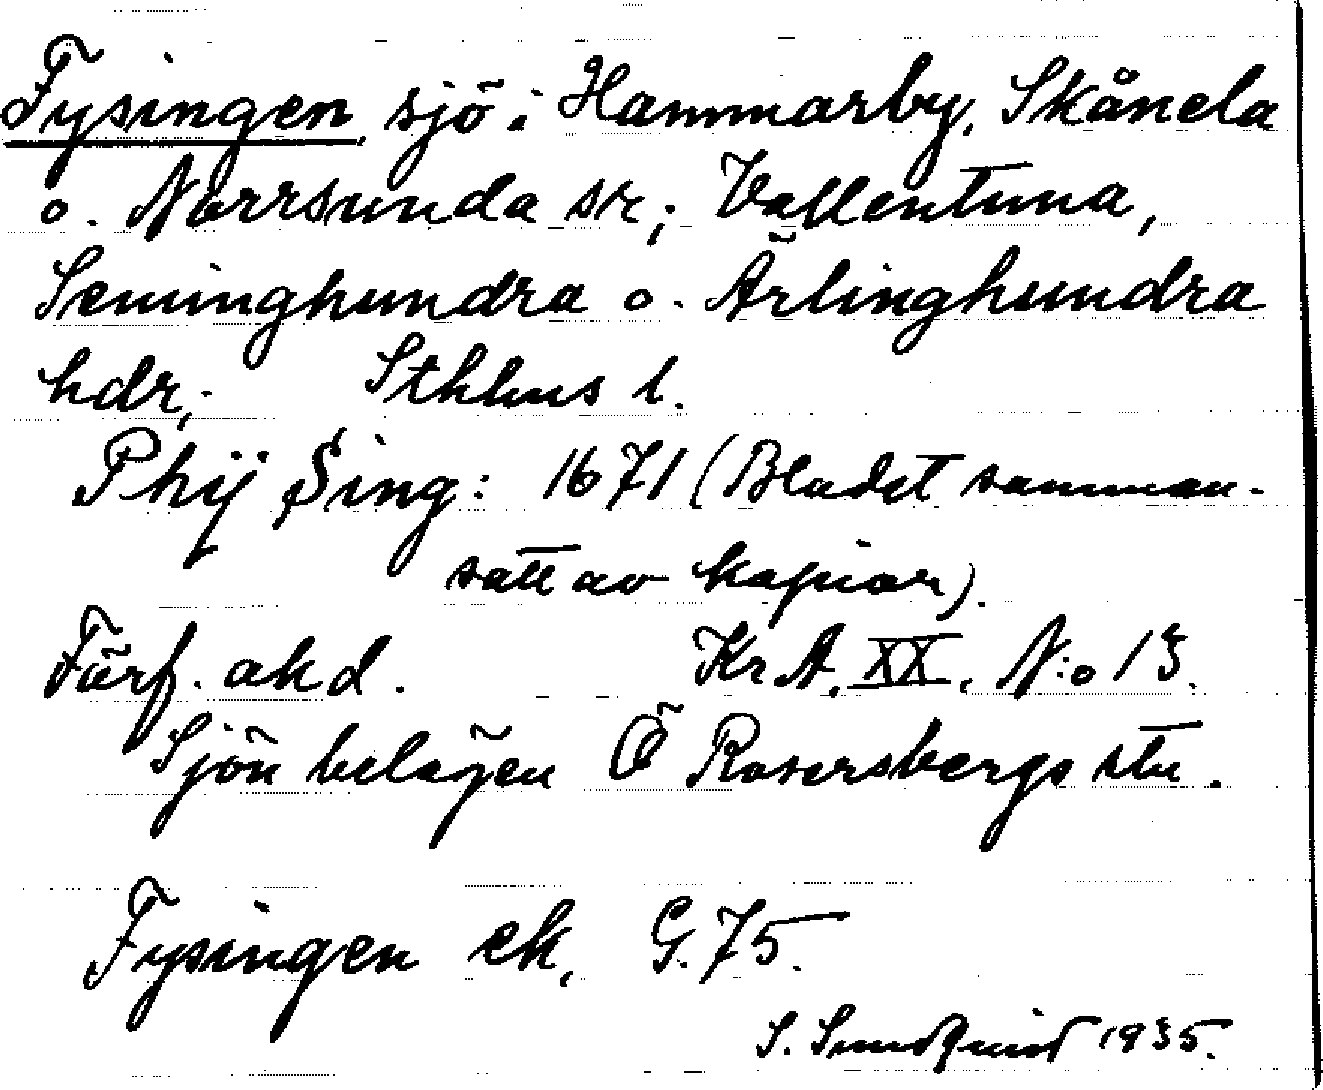 Fysingen, sjö i Hammarby, Skånela
o. Norrsunda snr; Vallentuna,
Seminghundra o. Ärlinghundra
hdr; Sthlms l.
Phÿ Sing: 1671 (Bladet samman-
satt av kopior).
Förf. okd. Kr.A. XX. N:o 13.
Sjön belägen Ö Rosersbergs stn.
Fysingen ek. G.75.
S. Sundquist 1935.